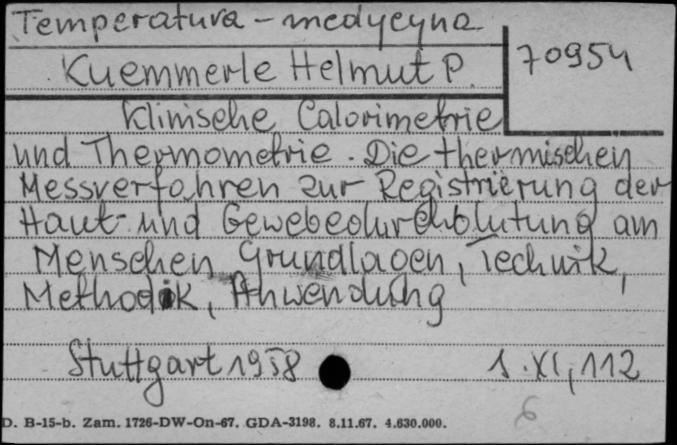 Temperatura - medycyna
Kuemmerle Helmut P.
70954
Klinische Calorimetrie
und Thermometrie. Die thermischen
Messverfahren zur Registrierung der
Haut- und Gewebedurchblutung am
Menschen Grundlagen, Technik,
Methodik, Anwendung
Stuttgart 1958
S. XI, 112
6
D. B-15-b. Zam. 1726-DW-On-67. GDA-3198. 8.11.67. 4.630.000.